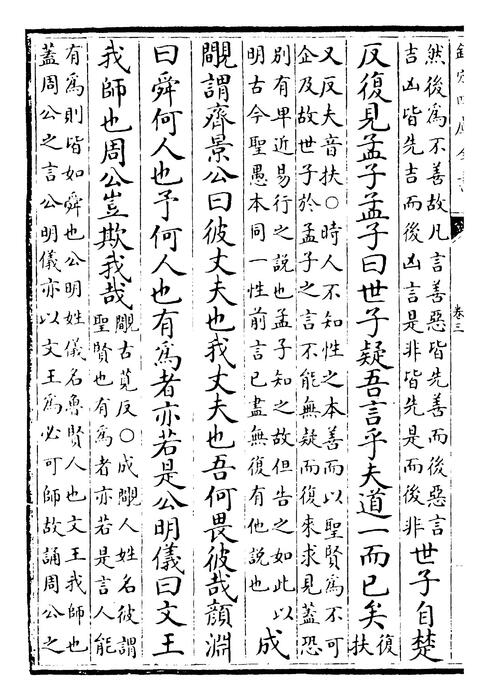 卷三
然後為不善故凡言善惡皆先善而後惡言
吉凶皆先吉而後凶言是非皆先是而後非
世子自楚
反復見孟子孟子曰世子疑吾言乎夫道一而已矣
復
扶
又反夫音扶○時人不知性之本善而以聖賢為不可
企及故世子於孟子之言不能無疑而復來求見蓋恐
別有卑近易行之說也孟子知之故但告之如此以
明古今聖愚本同一性前言已盡無復有他說也
成
覸謂齊景公曰彼丈夫也我丈夫也吾何畏彼哉顏淵
曰舜何人也予何人也有為者亦若是公明儀曰文王
我師也周公豈欺我哉
覸古莧反○成覸人姓名彼謂
聖賢也有為者亦若是言人能
有為則皆如舜也公明姓儀名魯賢人也文王我師也
蓋周公之言公明儀亦以文王為必可師故誦周公之